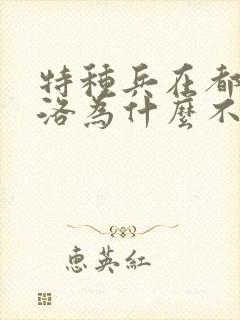 特種兵在都
洛為什麼不
惠英紅